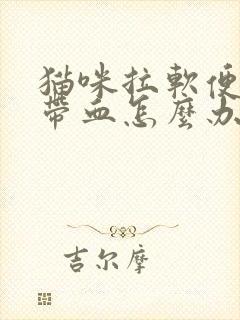 猫咪拉軟便
帶血怎麼办
吉尔摩